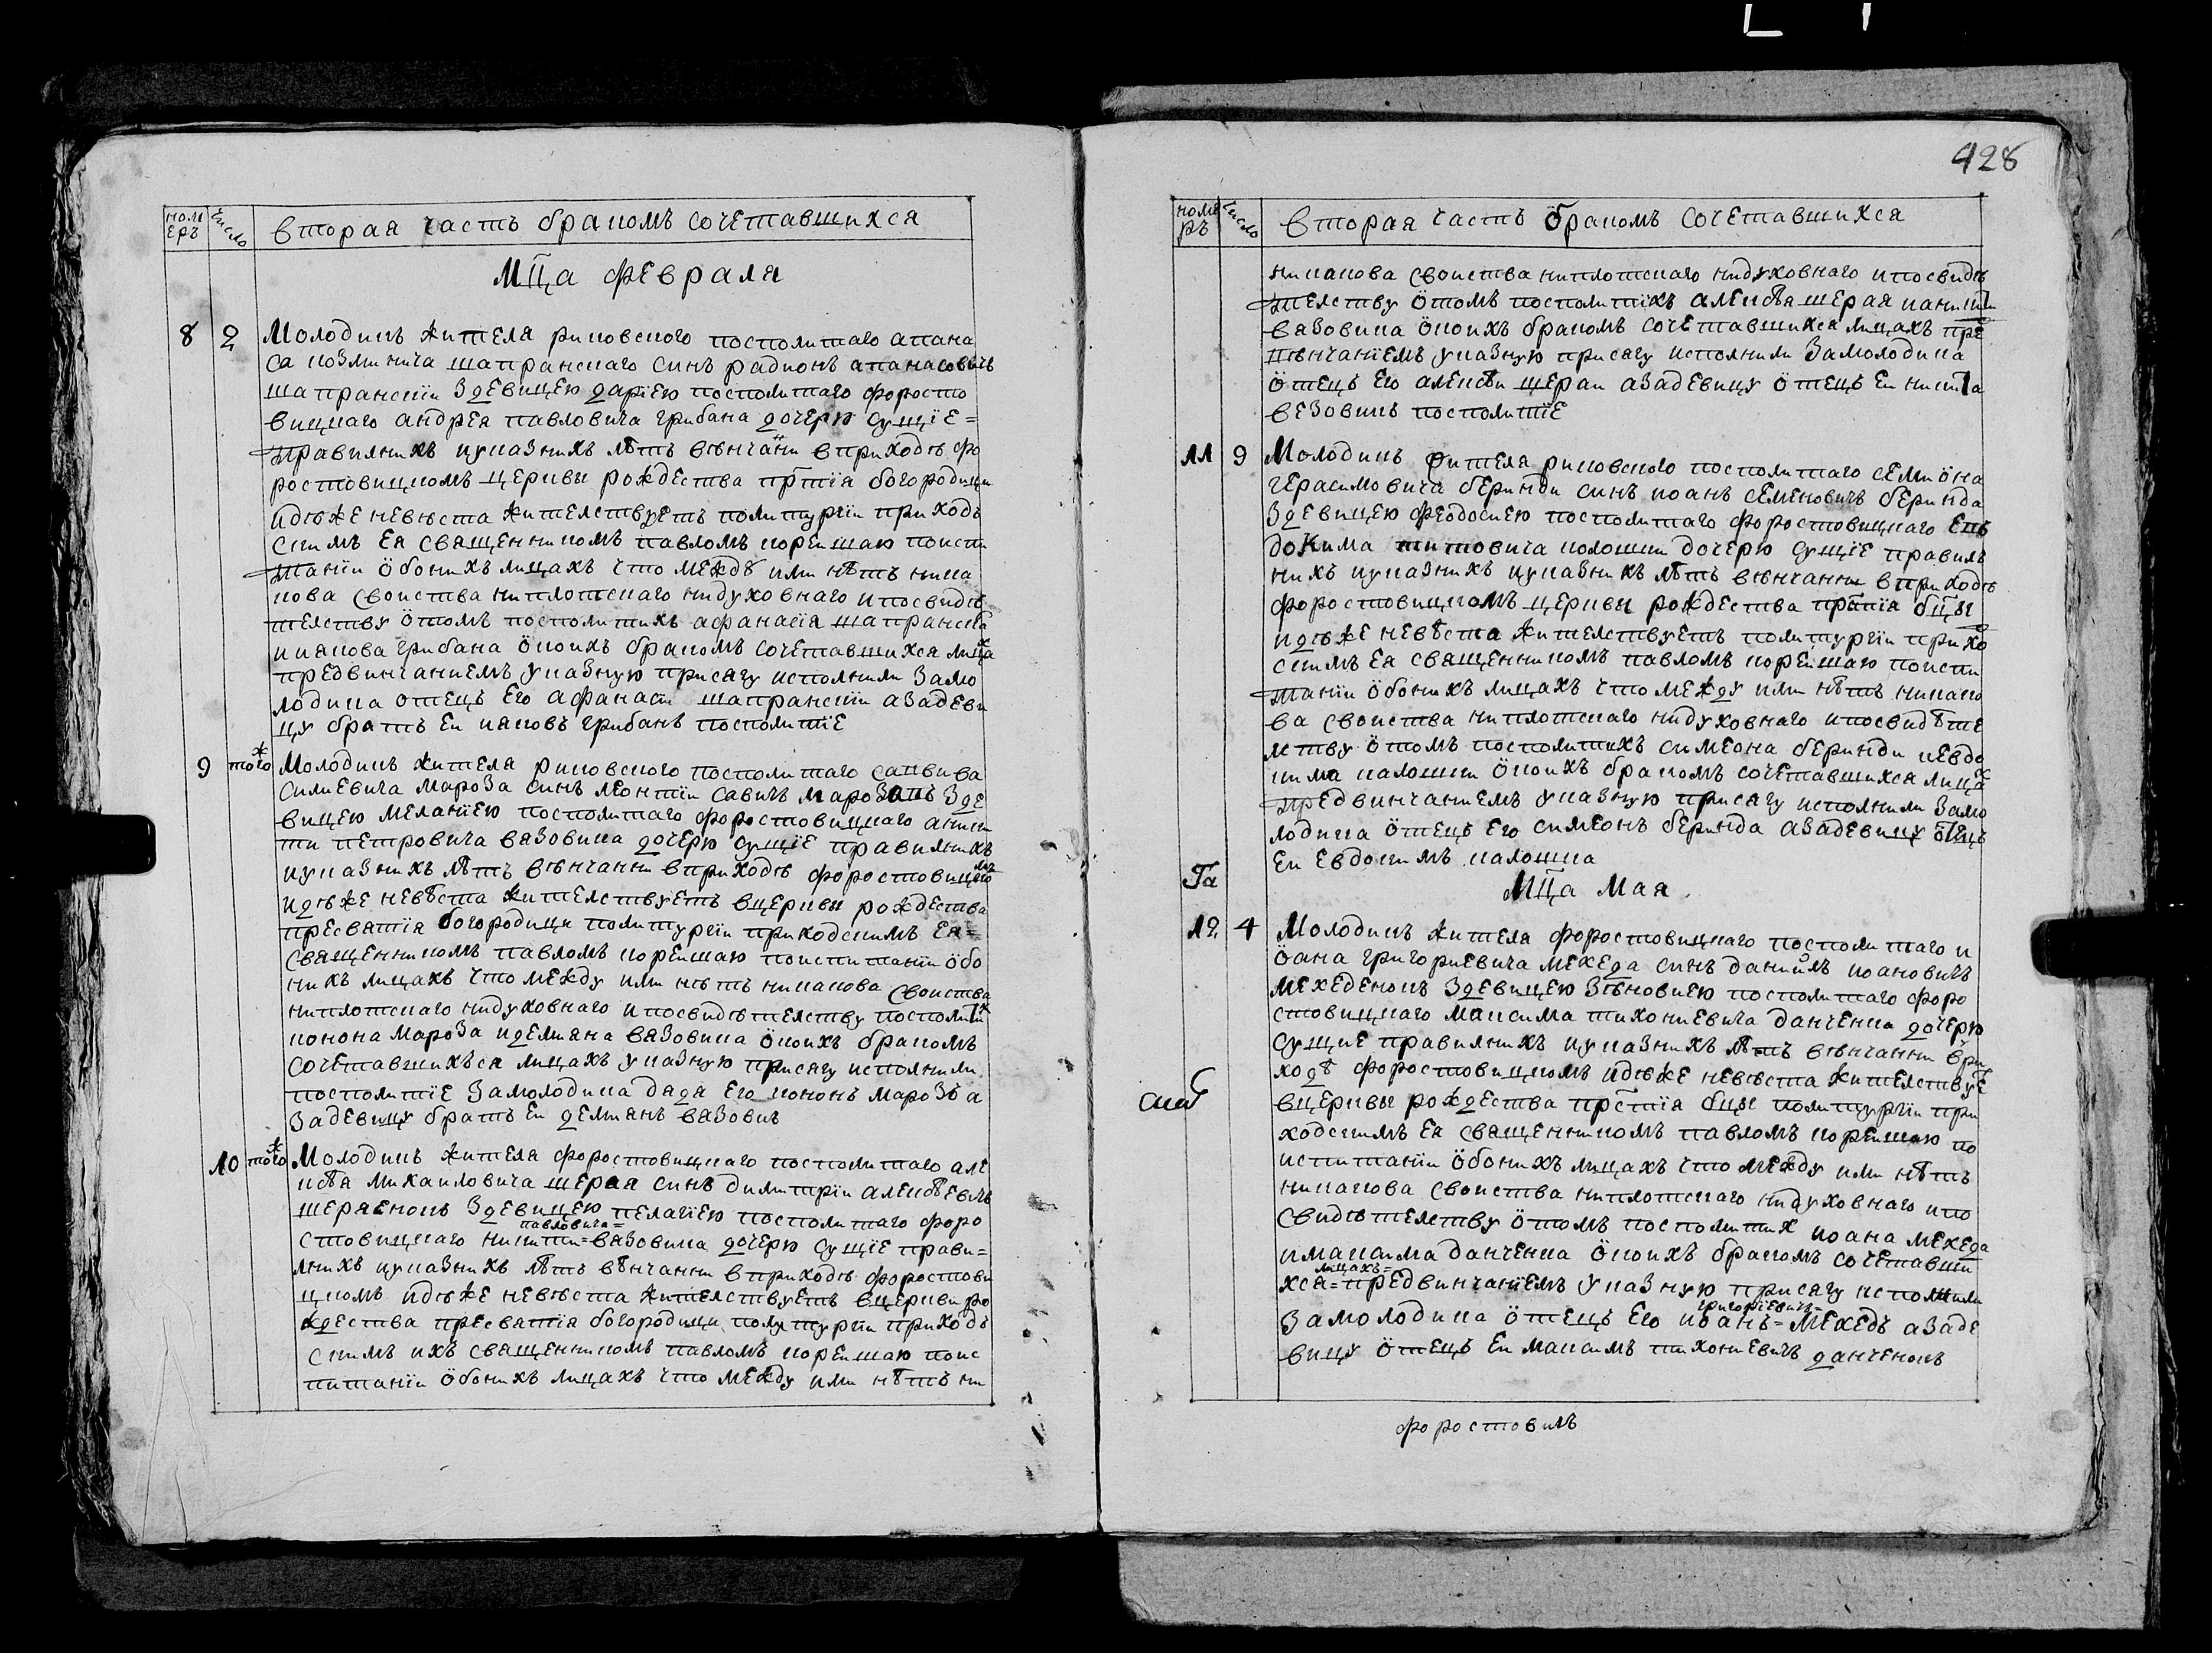 номеръ число вторая часть бракомъ сочетавшихся
Мца февраля
8 2 Молодикъ жителя риковского посполитаго апана
са козминича шапранского синъ радионъ апанасовичъ
шапранскїи здевицею дарїею посполитаго форосто
вицкаго андрея павловича грибана дочерю сущїе=
правилнихъ иуказнихъ лѣтъ вѣнчани вприходѣ фо
ростовицкомъ церквы рождества прстїя богородици
идѣже невѣста жителствуетъ политургїи приходъ
скимъ ея священникомъ павломъ корейшою поиспи
танїи обоихъ лицахъ что междѣ ими нѣтъ ника
кова своиства ниплотскаго нидуховнаго ипосвидѣ
телству отомъ посполитихъ афанасїя шапранска
иякова грибана окоихъ бракомъ сочетавшихся лицах
предвинчаниемъ указную присягу исполнили замо
лодика отецъ его афанасїи шапранскїи азадеви
цу братъ еи яковъ грибанъ посполитїе
9 тогож Молодикъ жителя риковского посполитаго савива
силиевича мароза синъ леонтїи савичъ марозанъ зде
вицею меланїею посполитаго форостовицкаго аники
ти петровича вязовика дочерю сущїе правилнихъ
иуказнихъ лѣтъ вѣнчани вприходѣ форостовицкомъ
идѣже невѣста жителствуетъ вцеркви рождества
пресвятїя богородици политургїи приходскимъ ея=
священникомъ павломъ корейшою поиспитанїи обо
ихъ лицахъ что между ими нѣтъ никакова своиства
ниплотскаго нидуховнаго ипосвидѣтелству посполитих
конона мароза идемяна вязовика окоихъ бракомъ
сочетавшихъся лицахъ указную присягу исполнили
посполитїе замолодика дядя его кононъ марозъ а
задевицу братъ еи демянъ вязовикъ
10 тогож Молодикъ жителя форостовицкаго посполитаго але
ксѣя михаиловича шерая синъ димитрїи алексѣевичъ
шераенокъ здевицею пелагїею посполитаго форо
павловича=
стовицкаго никити=вязовика дочерю сущїе прави=
лнихъ иуказнихъ лѣтъ вѣнчани вприходѣ форостови
цкомъ идѣже невѣста жителствуетъ вцеркви ро
ждества пресвятїя богородици полутургїи приходъ
скимъ ихъ священникомъ павломъ корейшою поис
питанїи обоихъ лицахъ что между ими нѣтъ ни
428
номеръ число вторая часть бракомъ сочетавшихся
никакова своиства ниплотскаго нидуховнаго ипосвидѣ
телству отомъ посполитїхъ алексѣя шерая иникити
вязовика окоихъ бракомъ сочетавшихся лицахъ пре
двѣнчанїемъ указную присягу исполнили замолодика
отецъ его алексѣи шераи азадевицу отецъ еи никита
везовикъ посполитїе
11 9 Молодикъ жителя риковского посполитаго семиона
герасимовича беринди синъ иоанъ семеновичъ беринда
здевицею феодосиею посполитаго форостовицкаго ев
докима титовича колошки дочерю сущїе правилъ
нихъ иуказнихъ иуказнихъ лѣтъ вѣнчани вприходѣ
форостовицкомъ церквы рождества прстїя бцы
идѣже невѣста жителствуетъ политургїи прихо
скимъ ея священникомъ павломъ корейшою поиспи
танїи обоихъ лицахъ что между ими нѣтъ никако
ва своиства ниплотскаго нидуховнаго ипосвидѣте
лству отомъ посполитихъ симеона беринди иевдо
кима калошки окоихъ бракомъ сочетавшихся лицах
предвинчаниемъ указную присягу исполнили замо
лодика отецъ его симеонъ беринда азадевицу отецъ
еи евдокимъ калошка
Мца Мая
12 4 Молодикъ жителя форостовицкаго посполитаго и
оана григориевича мехеда синъ данийлъ иоановичъ
мехеденокъ здевицею зѣновиею посполитаго форо
стовицкаго максима тихониевича данченка дочерю
сущие правилнихъ иуказнихъ лѣтъ вѣнчани впри
ходѣ форостовицкомъ идѣже невѣста жителствуе
вцерквы рождества прстїя бцы политургїи при
ходскимъ ея священникомъ павломъ корейшою по
испитанїи обоихъ лицахъ что между ими нѣтъ
никакова своиства ниплотскаго нидуховнаго ипо
свидѣтелству отомъ посполитих иоана мехеда
имаксима данченка окоихъ бракомъ сочетавши
лицахъ=
хся=предвинчанїемъ указную присягу исполнили
григорїевичъ=
замолодика отецъ его иоанъ=мехедъ азаде
вицу отецъ еи максимъ тихониевичъ данченокъ
форостовичъ